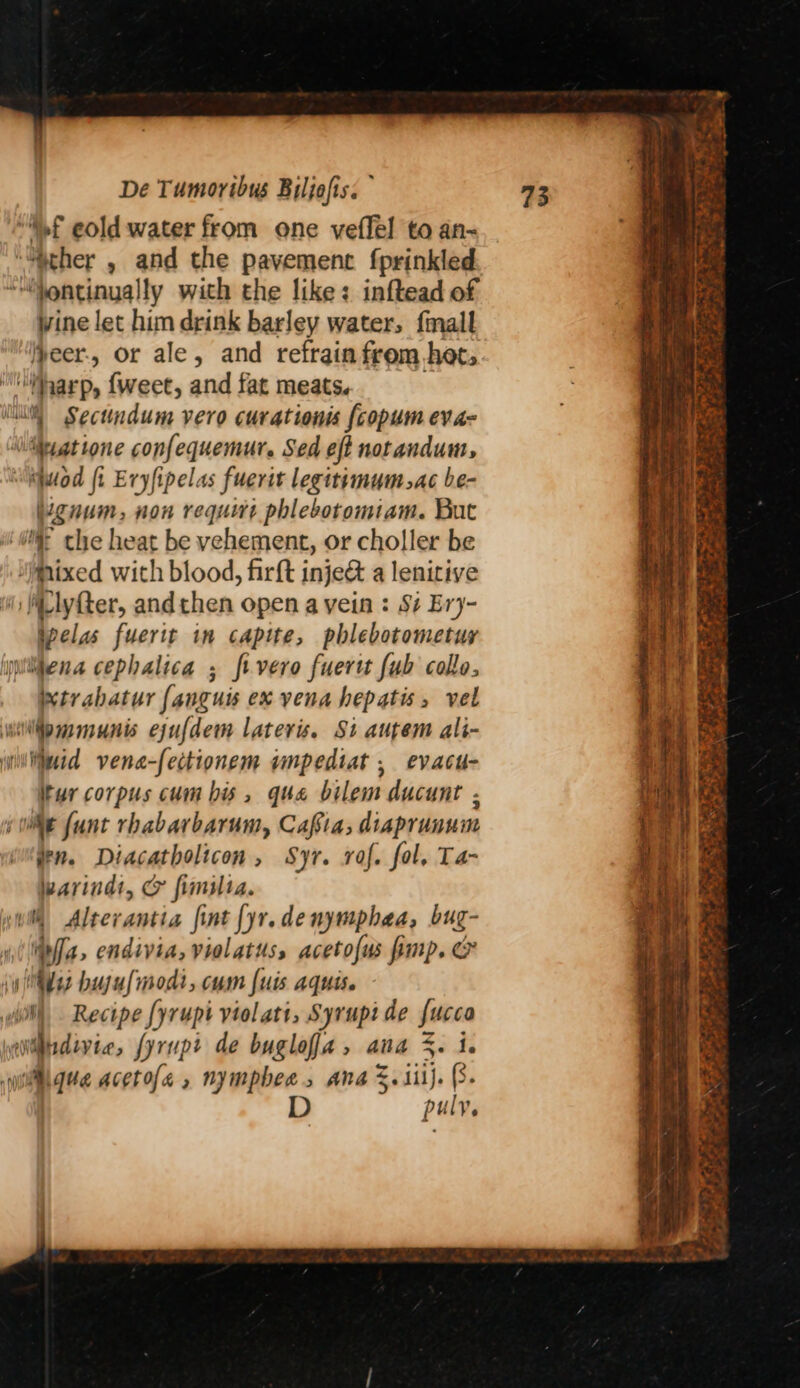 De Tumoribus Biliofis. 73
of cold water from one veſſel to an-
other , and the pavement ſprinkled
continually with the like: inſtead of
wine let him drink barley water, ſmall
beer, or ale, and refrain from hot,
ſharp, ſweet, and fat meats.
Secundum vero curationis ſcopum eva-
cuatione conſequemur. Sed eſt notandum,
quod ſi Eryſipelas fuerit legitimum,ac be-
nignum, non requirit phlebotomiam. But
if the heat be vehement, or choller be
mixed with blood, firſt inject a lenitive
Clyſter, and then open a vein : Si Ery-
ſipelas fuerit in capite, phlebotometur
vena cephalica ; ſi vero fuerit ſub collo,
extrahatur ſanguis ex vena hepatis, vel
communis ejuſdem lateris. Si autem ali-
quid venæ-ſectionem impediat , evacu-
etur corpus cum his , quæ bilem ducunt ;
ſunt rhabarbarum, Caſſia, diaprunum
Diacatholicon , Syr. roſ. ſol. Ta-
marindi, & ſimilia.
Alterantia ſint ſyr. de nymphæa, bug-
loſſa, endivia, violatus, acetoſus ſimp. &
hujuſmodi, cum ſuis aquis.
Recipe ſyrupi violati, Syrupi de ſucco
endiviæ, ſyrupi de bugloſſa , ana ℥. i.
aquæ acetoſæ , nympheæ , ana ℥. iiij. ß.
D pulv.